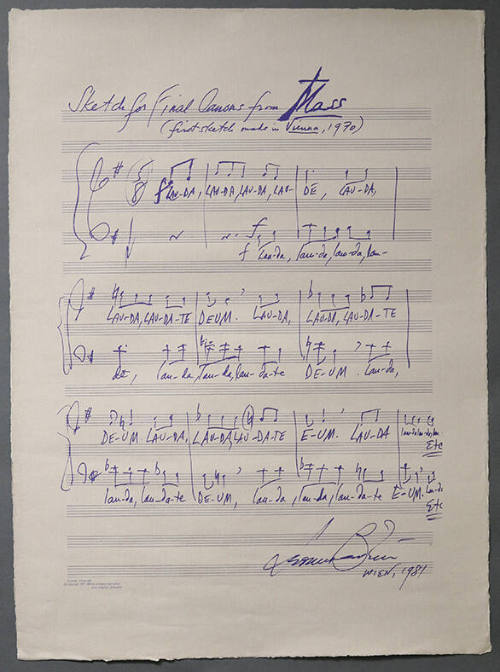 Sketch for Final Canons from Mass
(first sketch made in Vienna, 1970)
f LAU-DA, LAU-DA, LAU-DA, LAU- DE, LAU-DA,
f Lau-da, lau-da, lau-da, lau-
LAU-DA, LAU-DA-TE DEUM. LAU-DA, LAU-DA, LAU-DA-TE
de, lau-da, lau-da, lau-da-te DE-UM. Lau-da,
DE-UM LAU-DA, LAU-DA, LAU-DA-TE E-UM. LAU-DA
Etc
lau-da, lau-da-te DE-UM, lau-da, lau-da, lau-da-te E-UM. Lau-da
Etc
Leonard Bernstein
WIEN, 1981